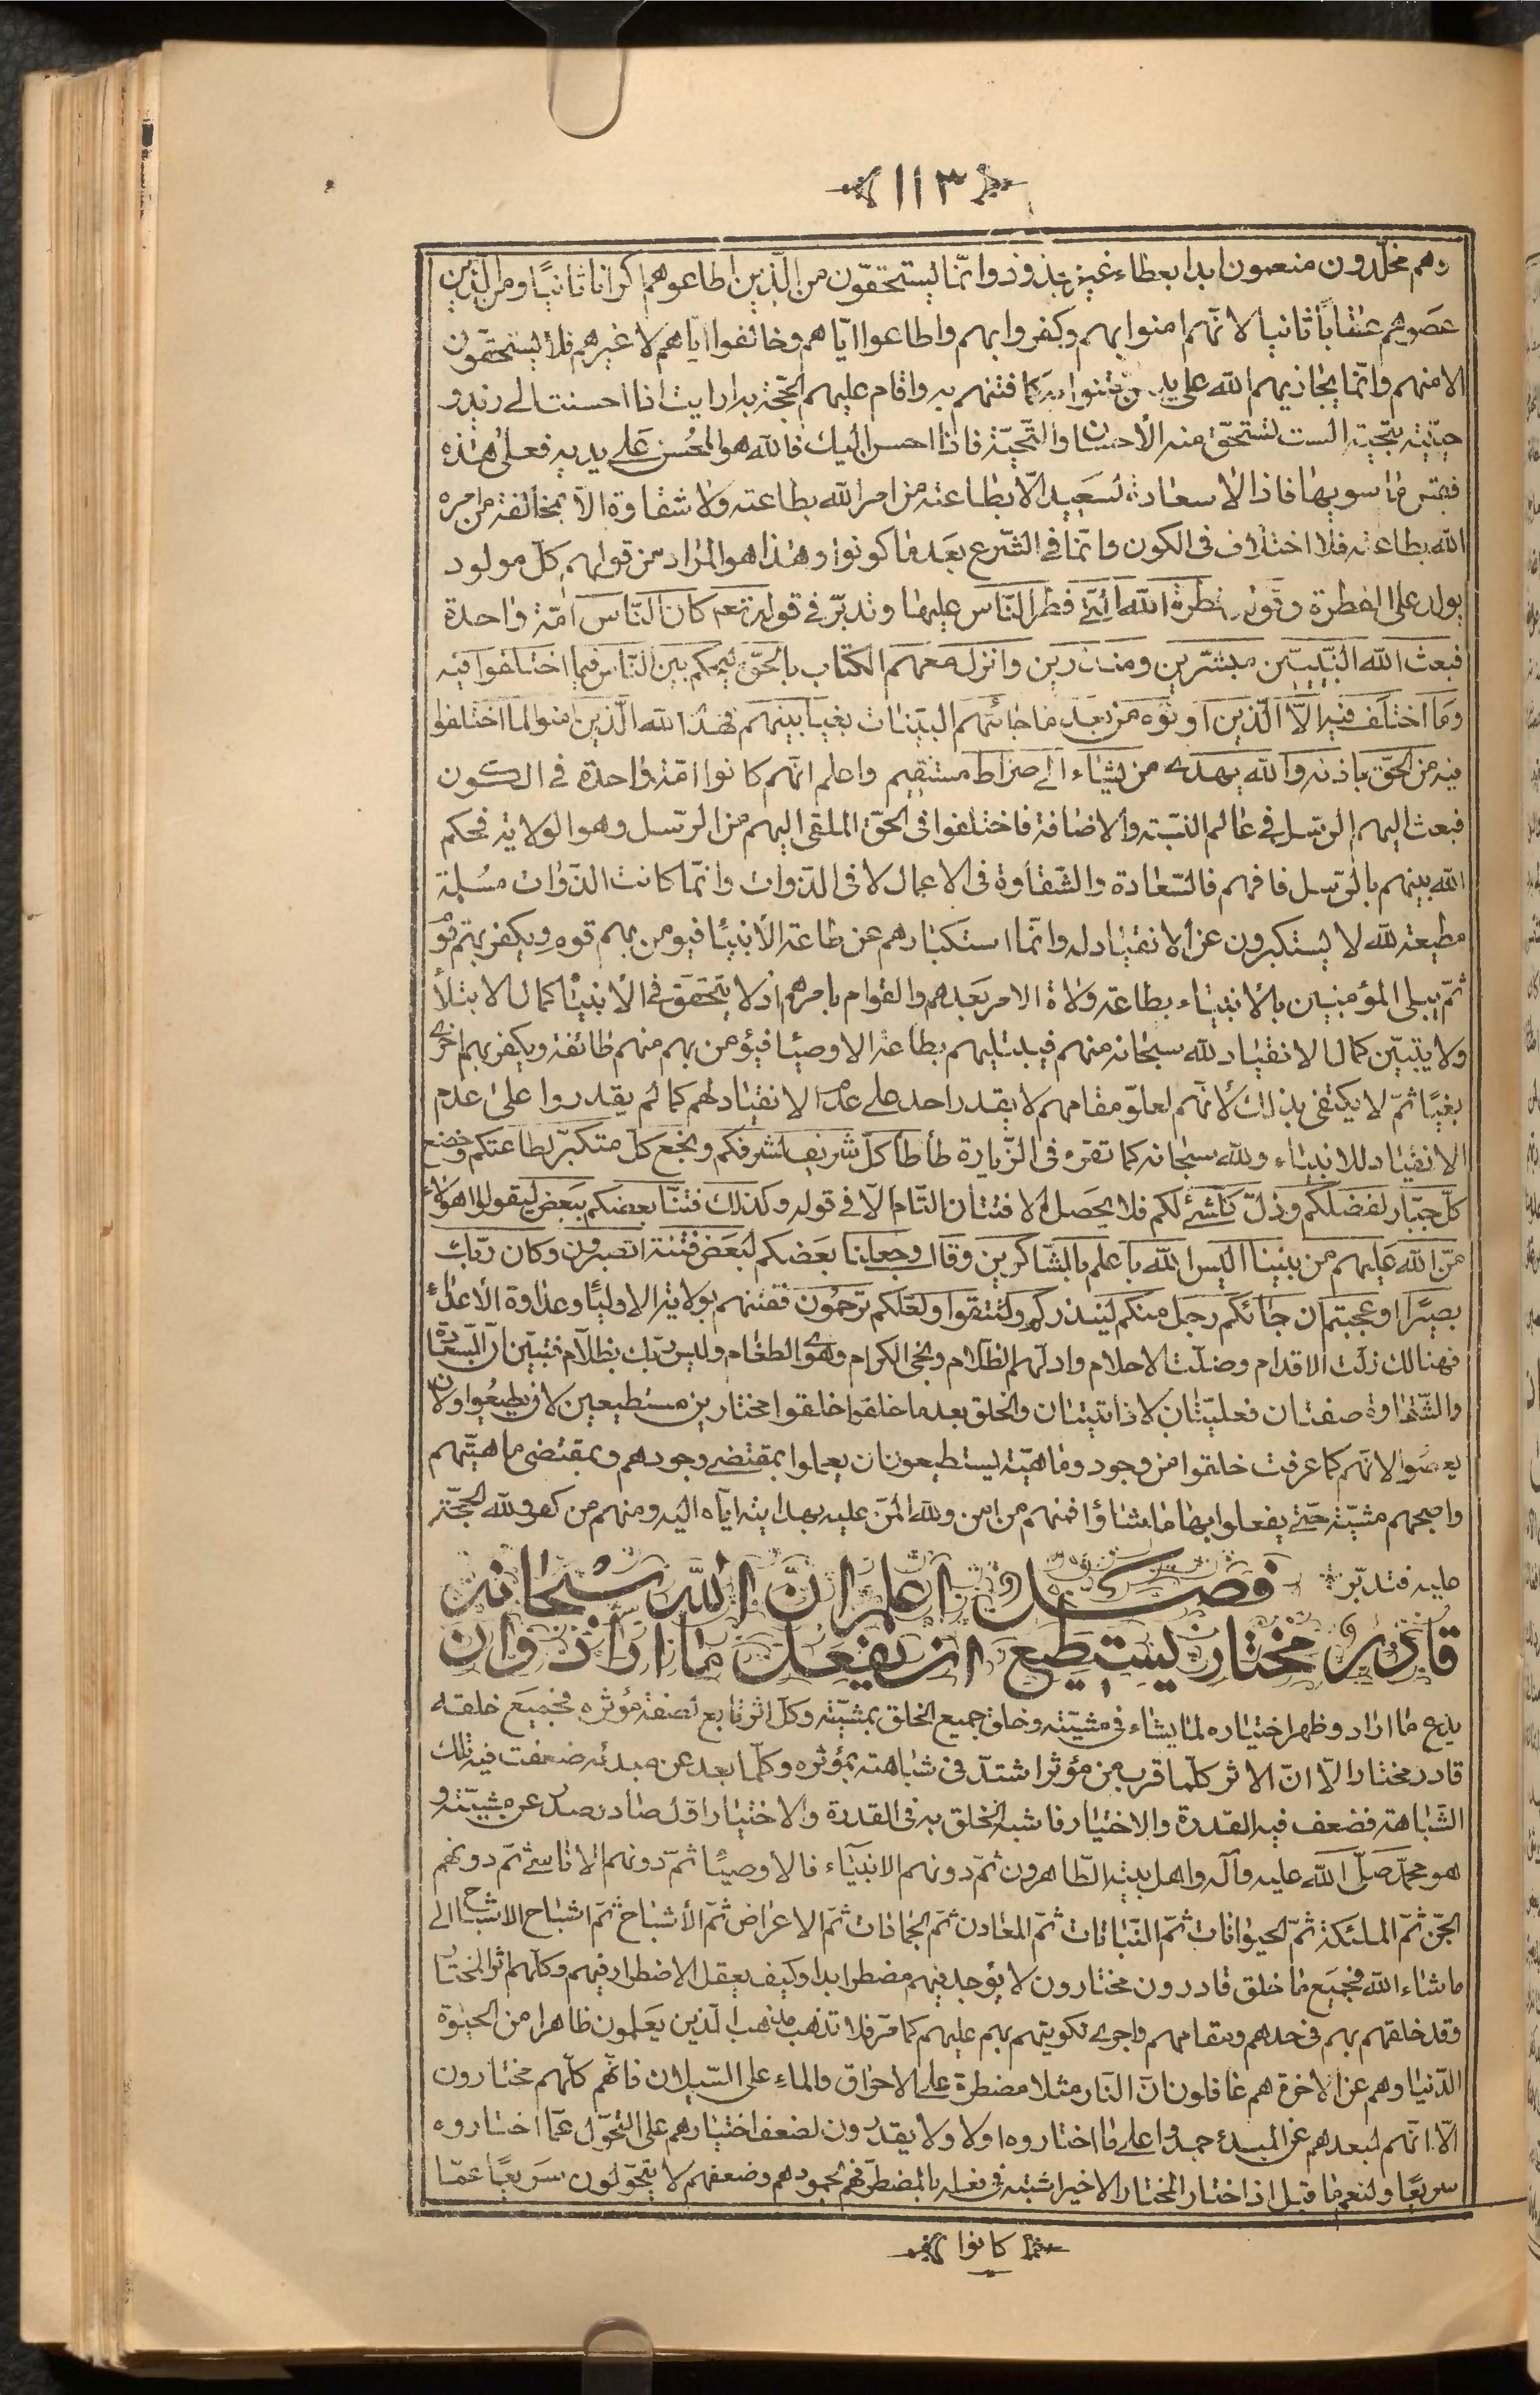 ١١٣
وهم مخلّدون منعمون ابدا بعطاء غير مجذوذ وانّما يستحقون من الّذين اطاعوهم اكرانا ثانيًا ومن الّذين
عصوهم عقاباً ثانيا لانّهم امنوا بهم وكفروا بهم واطاعوا ايّاهم وخالفوا ايّاهم لا غيرهم فلا يستحقّون
الا منهم وانّما يجازيهم الله على يد من فتنوا به كما فتنهم به واقام عليهم الحجّة به ارايت اذا احسنت الى زيد و
حيّيته بتحيّة الست تستحقّ منه الأحسان والتّحيّة فاذا احسن اليك فالله هو المحسن على يديه فعلى هذه
فقس ما سويها فاذا لا سعادة لسعيد الّا بطاعته من امر الله بطاعته ولا شقاوة الّا بمخالفة من امره
الله بطاعته فلا اختلاف فى الكون وانّما فى الشّرع بعد ما كونوا وهذا هو المراد من قولهم كلّ مولود
يولد على الفطرة وقوله فطرة الله الّتى فطر النّاس عليها وتدبّر فى قوله تعم كان النّاس امّة واحدة
فبعث الله النّبيّين مبشّرين ومنذرين وانزل معهم الكتاب بالحقّ ليحكم بين النّاس فيما اختلفوا فيه
وما اختلف فيه الّا الّذين اوتوه من بعد ما جائتهم البيّنات بغيا بينهم فهدا الله الّذين امنوا لما اختلفوا
فيه من الحقّ باذنه والله يهدى من يشاء الى صراط مستقيم واعلم انّهم كانوا امّة واحدة فى الكون
فبعث اليهم الرّسل فى عالم النّسبة والاضافة فاختلفوا فى الحقّ الملقى اليهم من الرّسل وهو الولاية فحكم
الله بينهم بالرّسل فافهم فالسّعادة والشّقاوة فى الاعمال لا فى الذّوات وانّما كانت الذّوات مسلمة
مطيعة لله لا يستكبرون عن الانقياد له وانّما استكبارهم عن طاعة الأنبيا فيومن بهم قوم ويكفر بهم قوم
ثمّ يبلى المؤمنين بالأنبياء بطاعة ولاة الامر بعدهم والقوام بامرهم اذ لا يتحقّق فى الأنبيا كمال الابتلأ
ولا يتبيّن كمال الانقياد لله سبحانه منهم فيبتليهم بطاعة الاوصيا فيؤمن بهم منهم طائفة ويكفر بهم اخرى
بغيًا ثمّ لا يكتفى بذلك لأنّهم لعلوّ مقامهم لا يقدر احد على عدم الانقياد لهم كما لم يقدروا على عدم
الانقياد للانبياء ولله سبحانه كما تقرء فى الزّيارة طأطأ كلّ شريف لشرفكم وبخع كلّ متكبّر لطاعتكم وخضع
كلّ جبّار لفضلكم وذلّ كلّ شىء لكم فلا يحصل الافتتان التّام الّا فى قوله وكذلك فتنّا بعضكم ببعض ليقولوا اهؤلاء
منّ الله عليهم من بيننا اليس الله باعلم بالشّاكرين وقال وجعلنا بعضكم لبعض فتنة اتصبرون وكان ربّك
بصيرًا اوعجبتم ان جائكم رجل منكم لينذركم ولتتقوا ولعلّكم ترحمون ففتنهم بولاية الاوليا وعداوة الأعداء
فهنالك زلّت الاقدام وضلّت الاحلام وادلهم الظلام ونجى الكرام وهوى الطغام وليس ربّك بظلّام فتبيّن انّ السّعادة
والشّقاوة صفتان فعليّتان لا ذاتيّتان والخلق بعد ما خلقوا خلقوا مختارين مستطيعين لان يطيعوا ولان
يعصوا لانّهم كما عرفت خلقوا من وجود وماهيّة يستطيعون ان يعملوا بمقتضى وجودهم وبمقتضى ماهيّتهم
واصحبهم مشيّة حتّى يفعلوا بها ما شاؤا فمنهم من امن ولله المنّ عليه بهدايته ايّاه اليه ومنهم من كفر ولله الحجّة
عليه فتدبّر فصل اعلم انّ الله سبحانه
قادر مختار يستطيع ان يفعل ما اراد وان
يدع ما اراد وظهر اختياره لما يشاء فى مشيّته وخلق جميع الخلق بمشيّته وكل اثر تابع لصفة مؤثره فجميع خلقه
قادر مختار الّا انّ الاثر كلّما قرب من مؤثر اشتدّ فى شباهته بمؤثره وكلّما بعد عن مبدئه ضعفت فيه تلك
الشّباهة فضعف فيه القدرة والاختيار فاشبه الخلق به فى القدرة والاختيار اوّل صادر صدر عن مشيّته و
هو محمّد صلّى الله عليه وآله واهل بيته الطّاهرون ثمّ دونهم الانبيآء فالاوصيا ثمّ دونهم الاناسىّ ثمّ دونهم
الجنّ ثمّ الملئكة ثمّ الحيوانات ثمّ النّباتات ثمّ المعادن ثمّ الجمادات ثمّ الاعراض ثمّ الأشباح ثمّ اشباح الاشباح الى
ما شاء الله فجميع ما خلق قادرون مختارون لا يوجد فيهم مضطر ابدا وكيف يعقل الاضطرار فيهم وكلّهم اثر المختار
وقد خلقهم بهم فى حدهم ومقامهم واجرى تكوينهم بهم عليهم كما مرّ فلا تذهب مذهب الّذين يعلمون ظاهرا من الحيوة
الدّنيا وهم عن الاخرة هم غافلون انّ النّار مثلا مضطرة على الاحراق والماء على السّيلان فانّهم كلّهم مختارون
الّا انّهم لبعدهم عن المبدء جمدوا على ما اختاروه اولا ولا يقدرون لضعف اختيارهم على التّحوّل عمّا اختاروه
سريعًا ولنعم ما قيل اذا اختار المختار الاخير اشتبه فى فعله بالمضطرّ فهم لجمودهم وضعفهم لا يتحوّلون سريعًا عمّا
كانوا